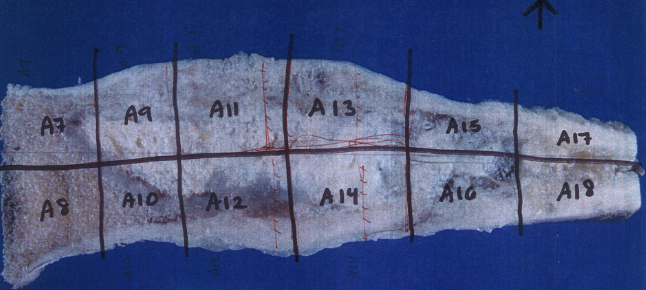 A7 A9 A11 A13 A15 A17
A8 A10 A12 A14 A16 A18